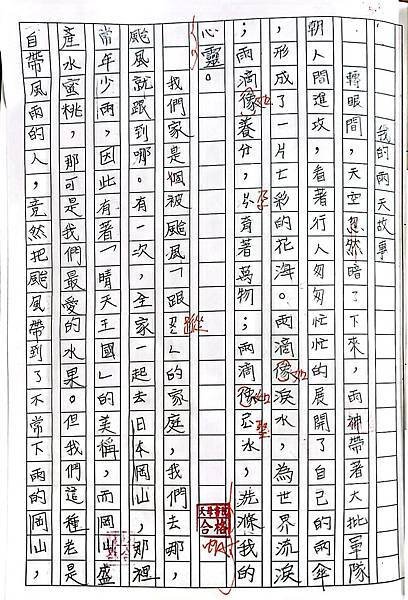 我的雨天故事
轉眼間，天空忽然暗了下來，雨神帶著大批軍隊
朝人間進攻，看著行人匆匆忙忙的展開了自己的雨傘
，形成了一片七彩的花海。雨滴像如淚水，為世界流淚
；雨滴像如養分，孕育著萬物；雨滴像如聖水，洗滌我的
心靈。
合格
我們家是個被颱風「跟蹤」的家庭，我們去哪，
颱風就跟到哪。有一次，全家一起去日本岡山，那裡
常年少雨，因此有著「晴天王國」的美稱，而岡山盛
產水蜜桃，那可是我們最愛的水果。但我們這種老是
自帶風雨的人，竟然把颱風帶到了不常下雨的岡山，